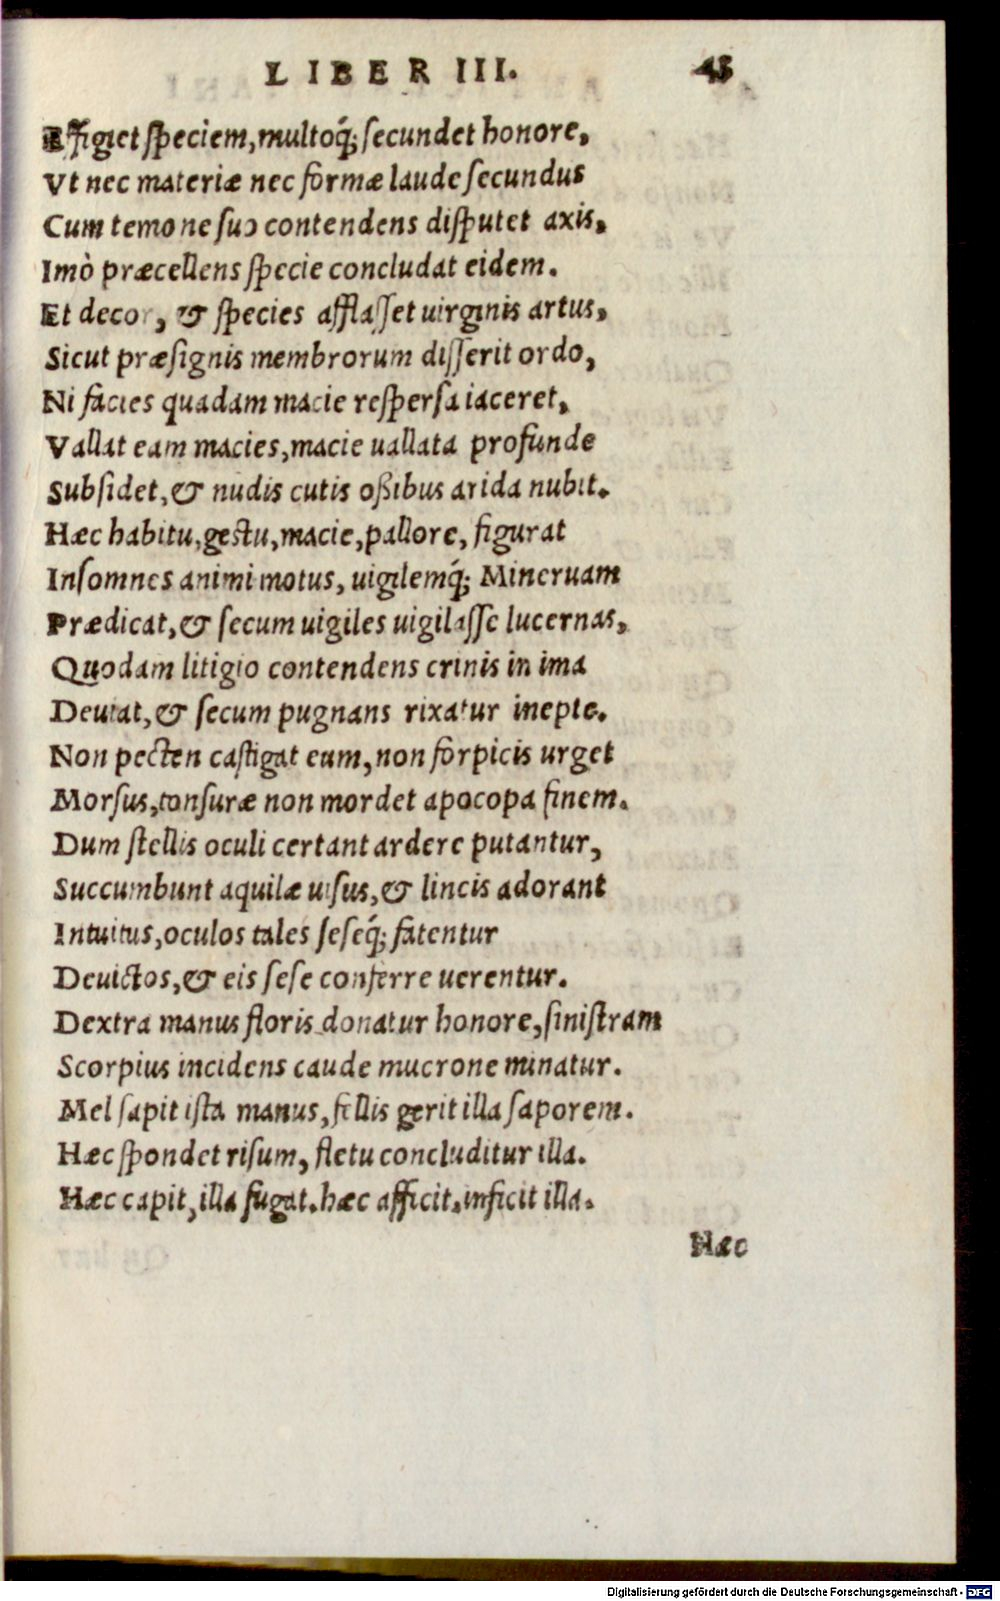 LIBER III. 43
Effigiet speciem, multoq́; secundet honore,
Vt nec materiæ nec formæ laude secundus
Cum temone suo contendens disputet axis,
Imò præcellens specie concludat eidem.
Et decor, & species afflasset uirginis artus,
Sicut præsignis membrorum disserit ordo,
Ni facies quadam macie respersa iaceret,
Vallat eam macies, macie uallata profunde
Subsidet, & nudis cutis oßibus arida nubit.
Hæc habitu, gestu, macie, pallore, figurat
Insomnes animi motus, uigilemq́; Mineruam
Prædicat, & secum uigiles uigilasse lucernas,
Quodam litigio contendens crinis in ima
Deuiat, & secum pugnans rixatur inepte.
Non pecten castigat eum, non forpicis urget
Morsus, tonsuræ non mordet apocopa finem.
Dum stellis oculi certant ardere putantur,
Succumbunt aquilæ uisus, & lincis adorant
Intuitus, oculos tales seseq́; fatentur
Deuictos, & eis sese conferre uerentur.
Dextra manus floris donatur honore, sinistram
Scorpius incidens caude mucrone minatur.
Mel sapit ista manus, fellis gerit illa saporem.
Hæc spondet risum, fletu concluditur illa.
Hæc capit, illa fugat. hæc afficit. inficit illa.
Hæc
Digitalisierung gefördert durch die Deutsche Forschungsgemeinschaft - DFG